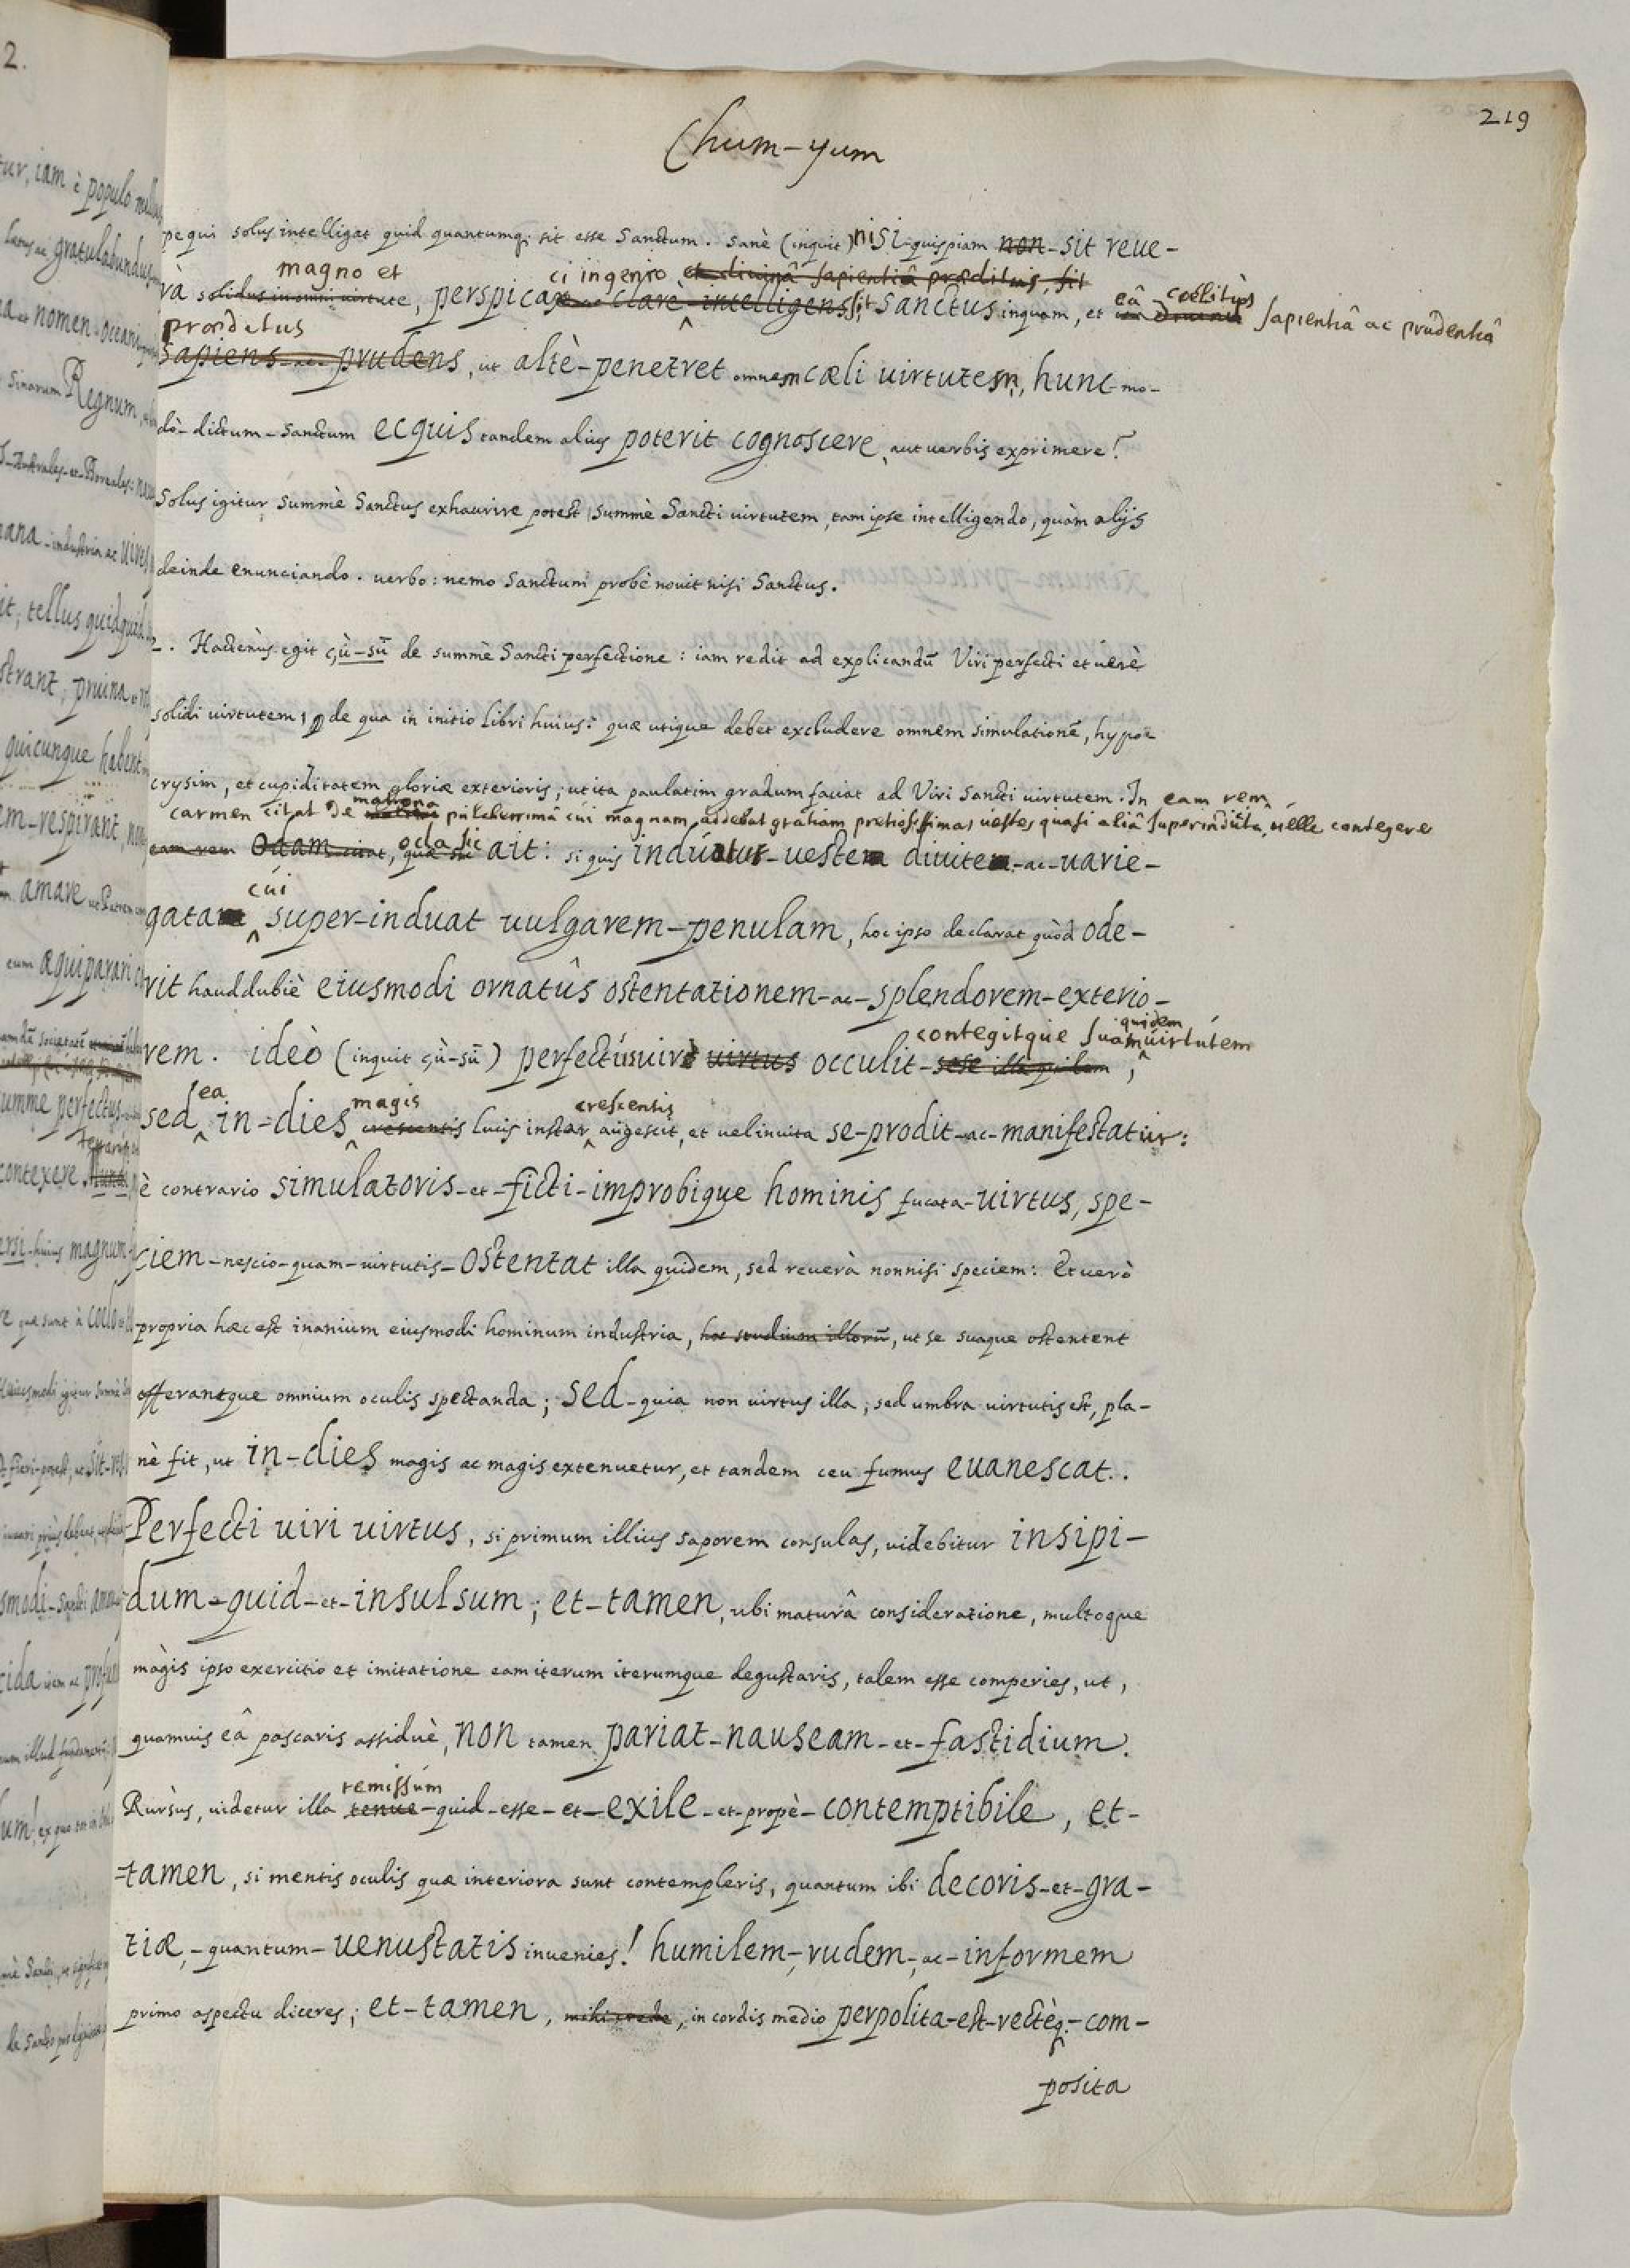 219
Chum-yum
pe qui solus intelligat quid quantumq; sit esse Sanctum. Sanè (inquit) nisi quispiam non-sit reue-
magno et ci ingenio et diuinâ sapientiâ præditus sit
rà solidus in omni uirtute, perspicax ac clarè-intelligens sit, Sanctus inquam, et eâ coelitùs sapientiâ ac prudentiâ
præditus
sapiens-ac-prudens, ut altè-penetret omnem cæli uirtutem, hunc-mo-
dò-dictum-Sanctum ecquis tandem alius poterit cognoscere, aut uerbis exprimere!
Solus igitur summè Sanctus exhaurire potest summè Sancti uirtutem, tam ipse intelligendo, quàm alijs
deinde enunciando. uerbo: nemo Sanctum probè nouit nisi Sanctus.
2. Hactenùs egit çù-sū de summè Sancti perfectione: iam redit ad explicandū Viri perfecti et uerè
solidi uirtutem, de qua in initio libri huius: quæ utique debet excludere omnem simulationē, hypo-
crysim, et cupiditatem gloriæ exterioris; ut ita paulatim gradum faciat ad Viri Sancti uirtutem. In eam rem
carmen citat de matrona pulcherrimâ cui magnam addebat gratiam pretiosissimas uestes quasi aliâ superinductâ uelle contegere
eam rem Odam citat, quæ sic oda sic ait: si quis indúatur-ueste diuite-ac-uarie-
cúi
gata super-induat uulgarem-penulam, hoc ipso declarat quòd ode-
rit hauddubiè eiusmodi ornatûs ostentationem-ac-splendorem-exterio-
contegitque suam quidem uirtútem
rem. ideò (inquit çù-sū) perfectus uir uirtus occulit-sese illa quidem,
ea magis crescentis
sed in-dies crescentis lucis instar augescit, et uel inuita se-prodit-ac-manifestatur:
è contrario simulatoris-et-ficti-improbique hominis fucata-uirtus, spe-
ciem-nescio-quam-uirtutis-ostentat illa quidem, sed reuerà nonnisi speciem: Et uerò
propria hæc est inanium eiusmodi hominum industria, hoc studium illorū, ut se suaque ostentent
offerantque omnium oculis spectanda; sed-quia non uirtus illa, sed umbra uirtutis est, pla-
nè fit, ut in-dies magis ac magis extenuetur, et tandem ceu fumus euanescat..
Perfecti uiri uirtus, si primum illius saporem consulas, uidebitur insipi-
dum-quid-et-insulsum; et-tamen, ubi maturâ consideratione, multoque
màgis ipso exercitio et imitatione eam iterum iterumque degustaris, talem esse comperies, ut,
quamuis eâ pascaris assiduè, non tamen pariat-nauseam-et-fastidium.
remissúm
Rursus, uidetur illa tenue-quid-esse-et-exile-et-propè-contemptibile, et-
-tamen, si mentis oculis quæ interiora sunt contempleris, quantum ibi decoris-et-gra-
tiæ,-quantum-uenustatis inuenies! humilem,-rudem,-ac-informem
primo aspectu diceres; et-tamen, mihi crede, in cordis medio perpolita-est-rectèq;-com-
posita